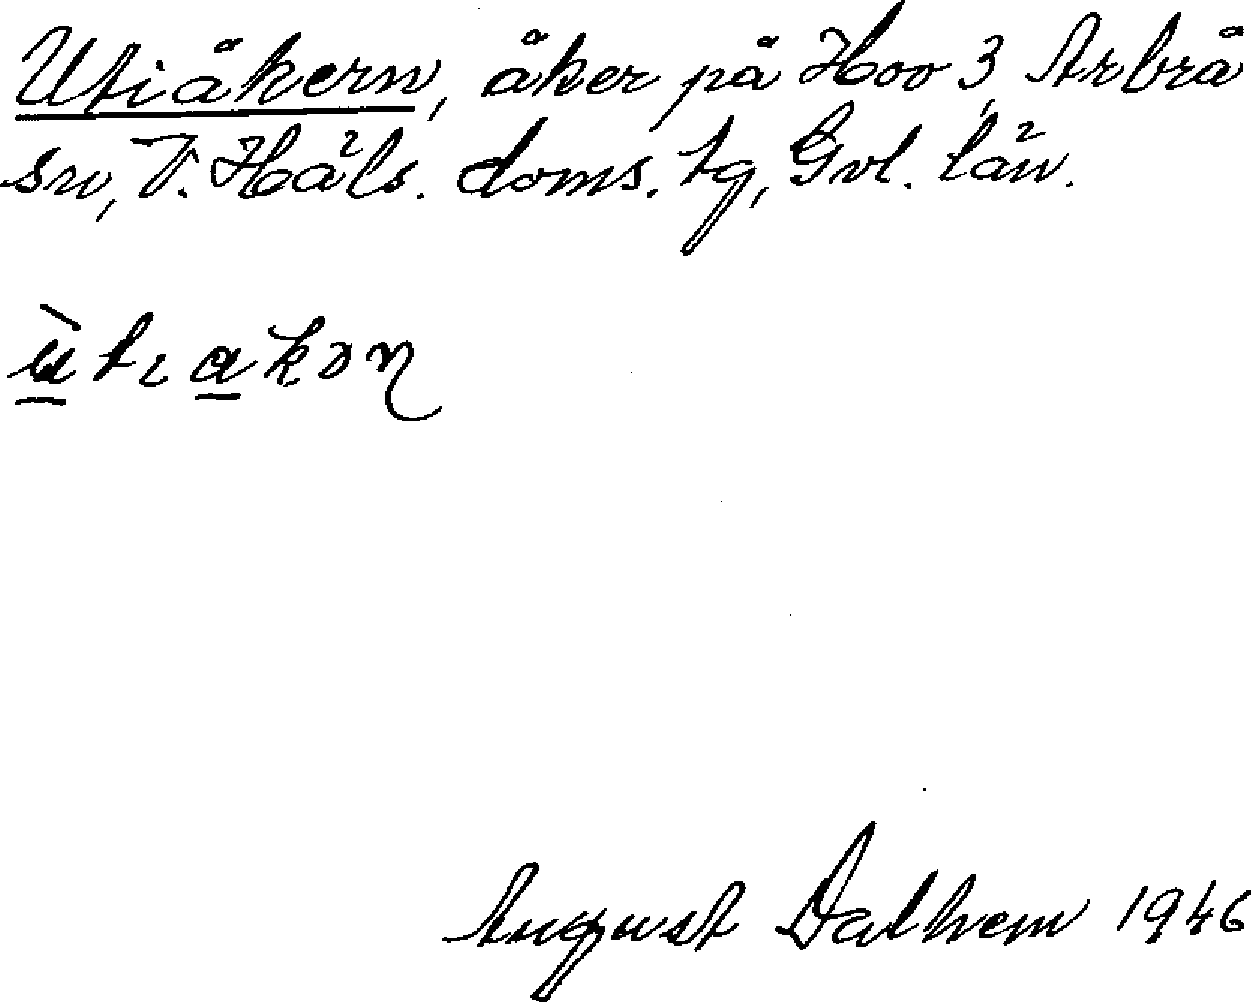 Utiåkern, åker på Hoo 3, Arbrå
sn, V. Häls. doms. tg, Gvl. län.
ù̱tɩa̱kən
August Dalhem 1946